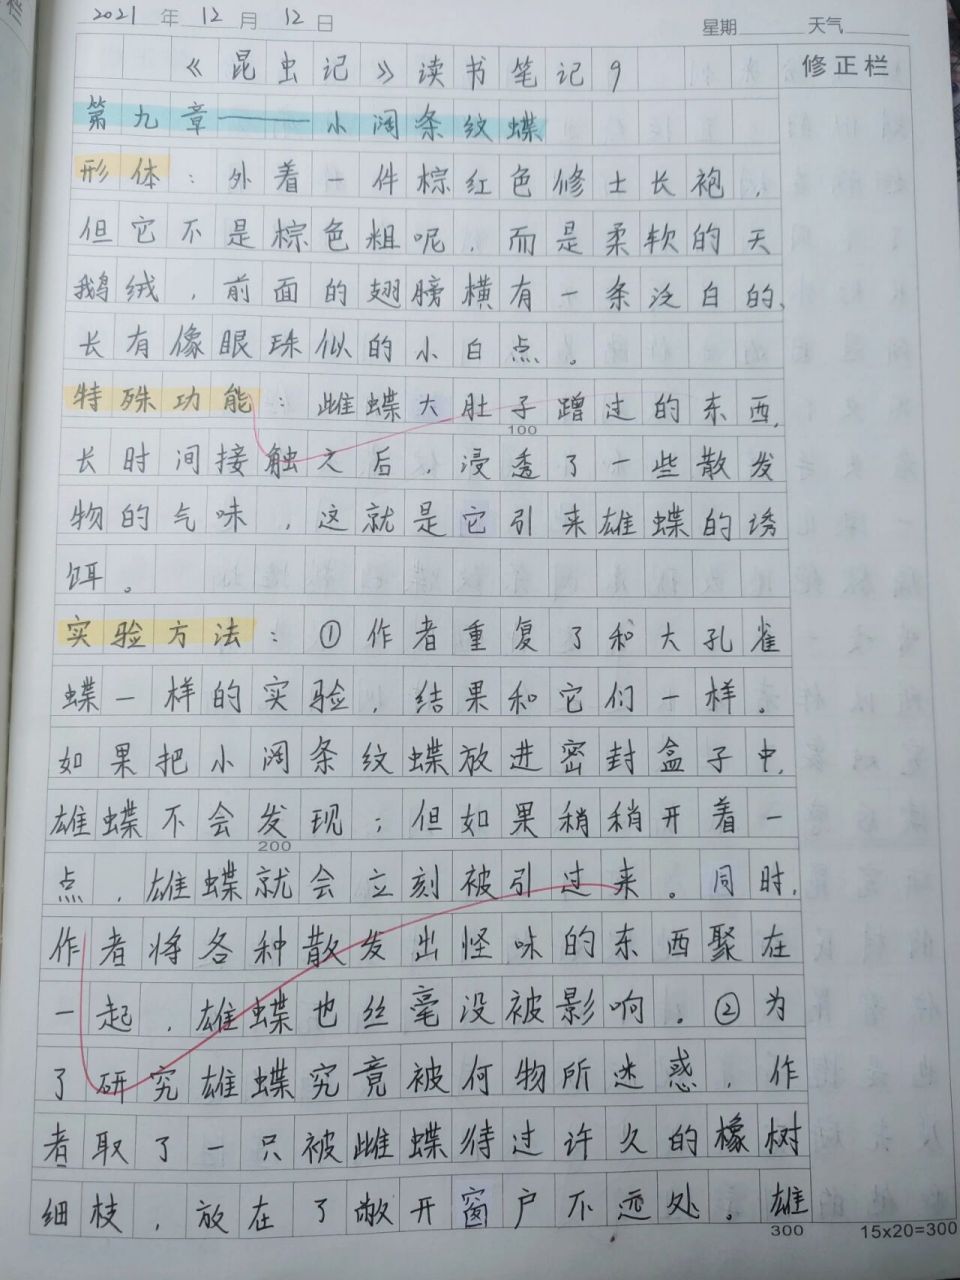 2021年12月12日 星期 天气
《昆虫记》读书笔记9 修正栏
第九章——小阔条纹蝶
形体：外着一件棕红色修士长袍，
但它不是棕色粗呢，而是柔软的天
鹅绒，前面的翅膀横有一条泛白的、
长有像眼珠似的小白点。
特殊功能：雌蝶大肚子蹭过的东西，
100
长时间接触之后，浸透了一些散发
物的气味，这就是它引来雄蝶的诱
饵。
实验方法：①作者重复了和大孔雀
蝶一样的实验，结果和它们一样。
如果把小阔条纹蝶放进密封盒子中，
雄蝶不会发现；但如果稍稍开着一
200
点，雄蝶就会立刻被引过来。同时，
作者将各种散发出怪味的东西聚在
一起，雄蝶也丝毫没被影响。②为
了研究雄蝶究竟被何物所迷惑，作
者取了一只被雌蝶待过许久的橡树
细枝，放在了敞开窗户不远处。雄
300 15x20=300